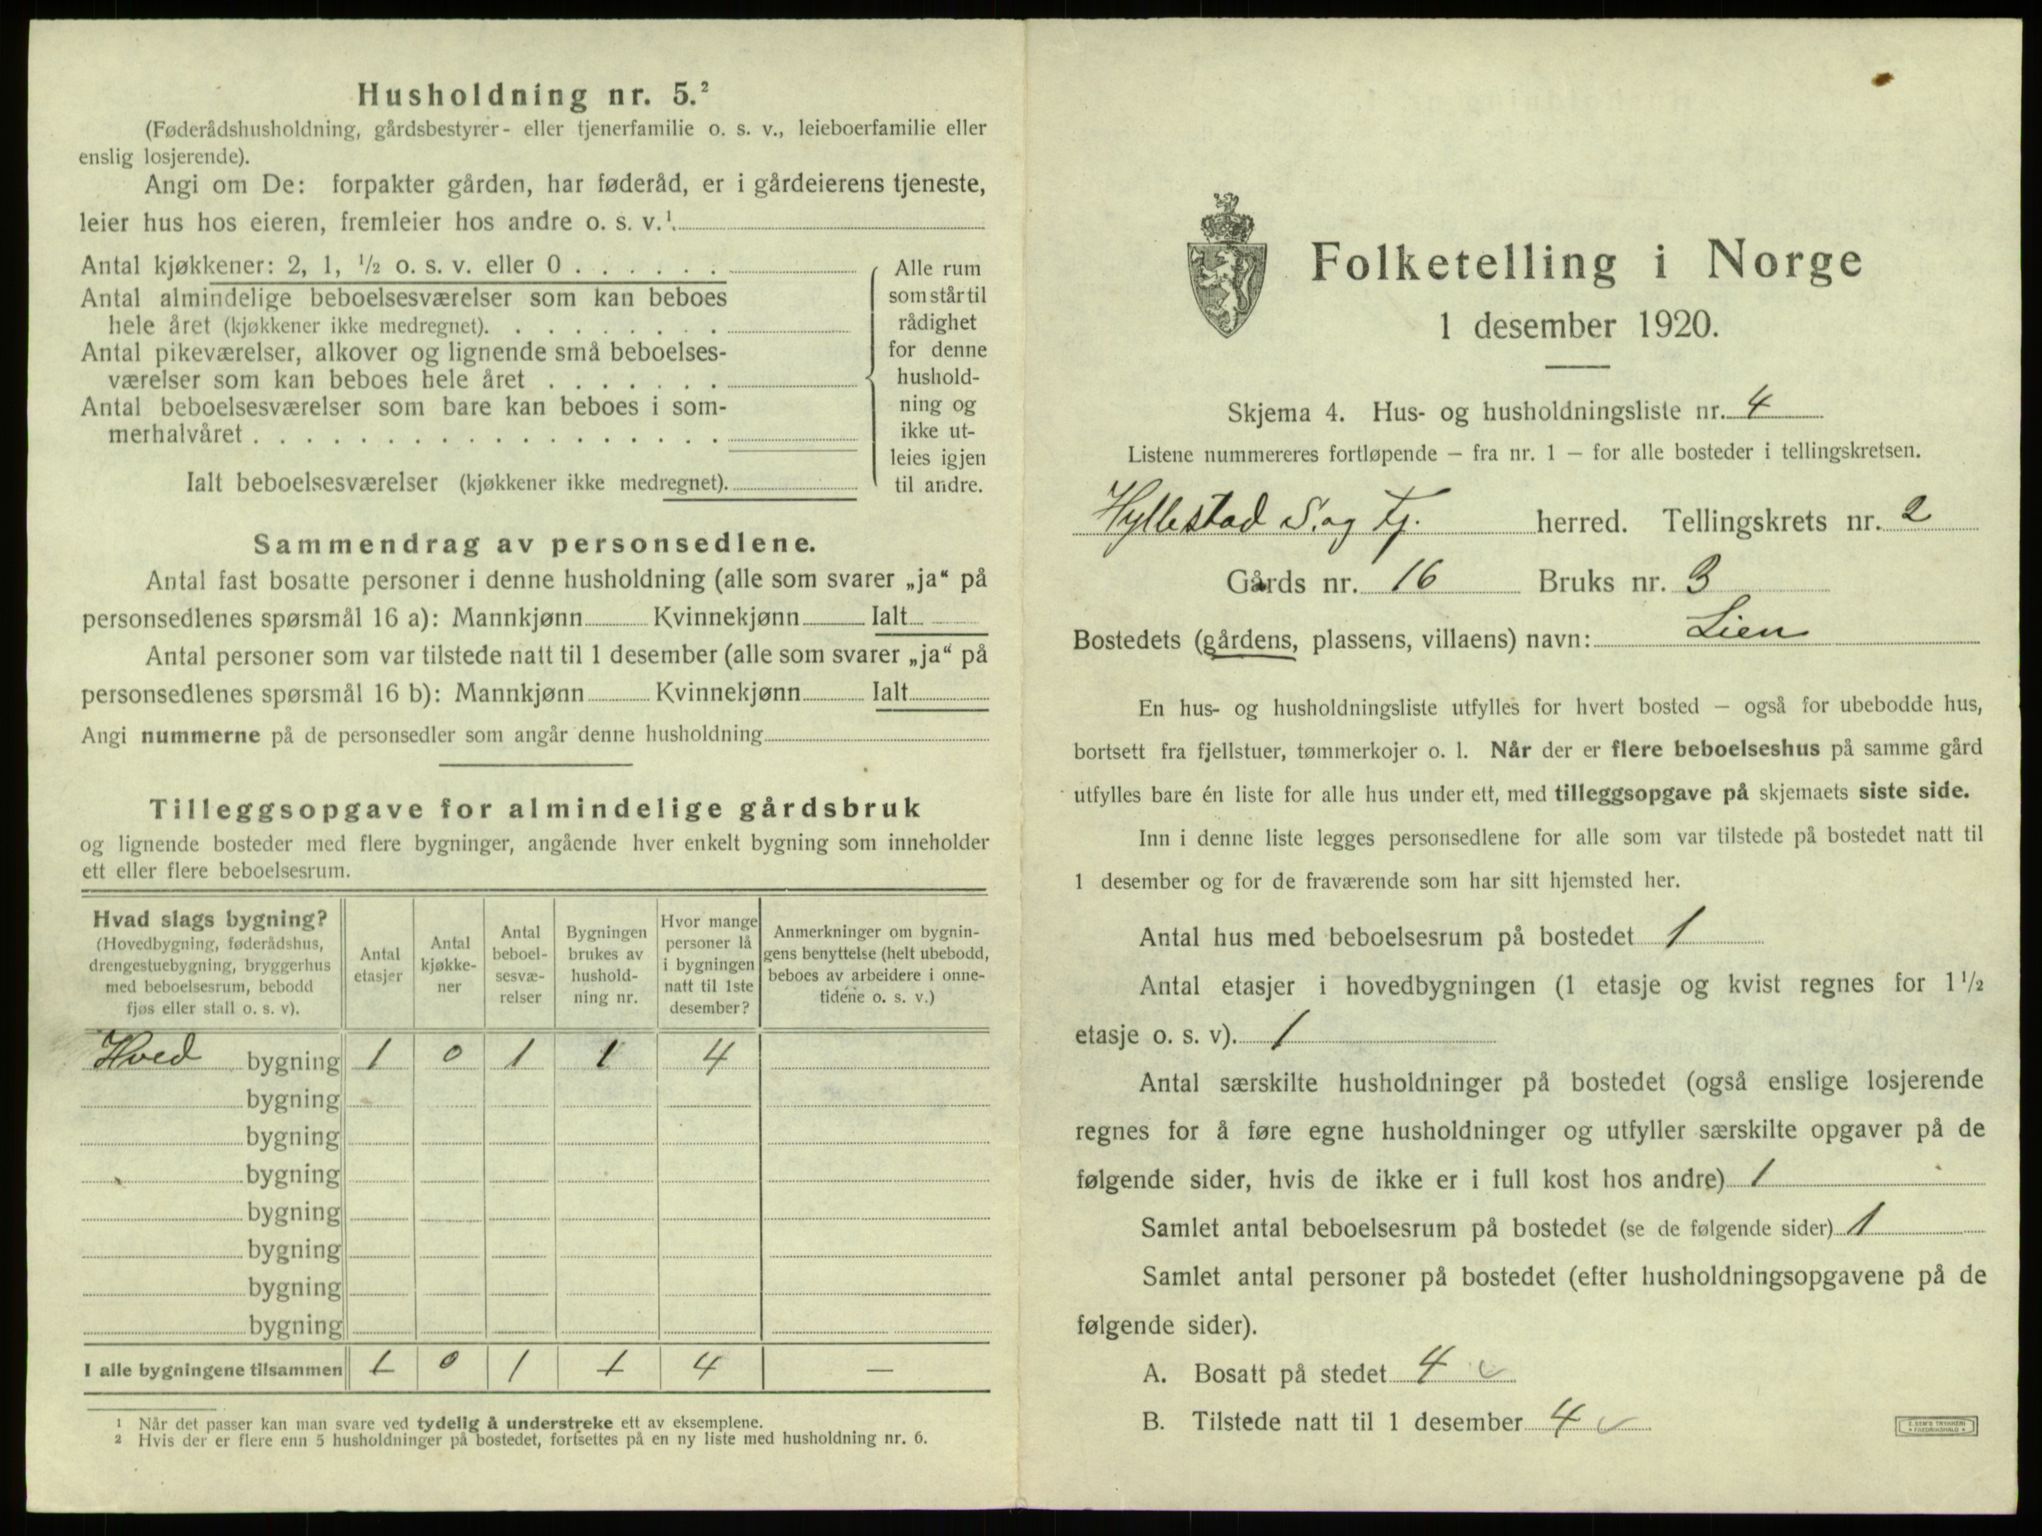 Husholdning nr. 5.²
(Føderådshusholdning, gårdsbestyrer- eller tjenerfamilie o. s. v., leieboerfamilie eller
enslig losjerende).
Angi om De: forpakter gården, har føderåd, er i gårdeierens tjeneste,
leier hus hos eieren, fremleier hos andre o. s. v.¹
Antal kjøkkener: 2, 1, ½ o. s. v. eller 0 . . . . . .
Antal almindelige beboelsesværelser som kan beboes
hele året (kjøkkener ikke medregnet). . . . . . . . .
Antal pikeværelser, alkover og lignende små beboelses-
værelser som kan beboes hele året . . . . . . .
Antal beboelsesværelser som bare kan beboes i som-
merhalvåret . . . . . . . . . . . . . . . . . .
Ialt beboelsesværelser (kjøkkener ikke medregnet).
Alle rum
som står til
rådighet
for denne
hushold-
ning og
ikke ut-
leies igjen
til andre.
Sammendrag av personsedlene.
Antal fast bosatte personer i denne husholdning (alle som svarer „ja“ på
personsedlenes spørsmål 16 a): Mannkjønn Kvinnekjønn Ialt
Antal personer som var tilstede natt til 1 desember (alle som svarer „ja“ på
personsedlenes spørsmål 16 b): Mannkjønn Kvinnekjønn Ialt
Angi nummerne på de personsedler som angår denne husholdning
Tilleggsopgave for almindelige gårdsbruk
og lignende bosteder med flere bygninger, angående hver enkelt bygning som inneholder
ett eller flere beboelsesrum.
Hvad slags bygning?
(Hovedbygning, føderådshus,
drengestuebygning, bryggerhus
med beboelsesrum, bebodd
fjøs eller stall o. s. v).
Antal
etasjer
Antal
kjøkke-
ner
Antal
beboel-
sesvæ-
relser
Bygningen
brukes av
hushold-
ning nr.
Hvor mange
personer lå
i bygningen
natt til 1ste
desember?
Anmerkninger om bygnin-
gens benyttelse (helt ubebodd,
beboes av arbeidere i onne-
tidene o. s. v.)
Hved bygning 1 0 1 1 4
bygning
bygning
bygning
bygning
bygning
bygning
bygning
I alle bygningene tilsammen 1 0 1 1 4 —
¹ Når det passer kan man svare ved tydelig å understreke ett av eksemplene.
² Hvis der er flere enn 5 husholdninger på bostedet, fortsettes på en ny liste med husholdning nr. 6.
Folketelling i Norge
1 desember 1920.
Skjema 4. Hus- og husholdningsliste nr. 4
Listene nummereres fortløpende – fra nr. 1 – for alle bosteder i tellingskretsen.
Hyllestad S. og Fj. herred. Tellingskrets nr. 2
Gårds nr. 16 Bruks nr. 3
Bostedets (gårdens, plassens, villaens) navn: Lien
En hus- og husholdningsliste utfylles for hvert bosted – også for ubebodde hus,
bortsett fra fjellstuer, tømmerkojer o. l. Når der er flere beboelseshus på samme gård
utfylles bare én liste for alle hus under ett, med tilleggsopgave på skjemaets siste side.
Inn i denne liste legges personsedlene for alle som var tilstede på bostedet natt til
1 desember og for de fraværende som har sitt hjemsted her.
Antal hus med beboelsesrum på bostedet 1
Antal etasjer i hovedbygningen (1 etasje og kvist regnes for 1½
etasje o. s. v). 1
Antal særskilte husholdninger på bostedet (også enslige losjerende
regnes for å føre egne husholdninger og utfyller særskilte opgaver på de
følgende sider, hvis de ikke er i full kost hos andre) 1
Samlet antal beboelsesrum på bostedet (se de følgende sider) 1
Samlet antal personer på bostedet (efter husholdningsopgavene på de
følgende sider).
A. Bosatt på stedet 4
B. Tilstede natt til 1 desember 4